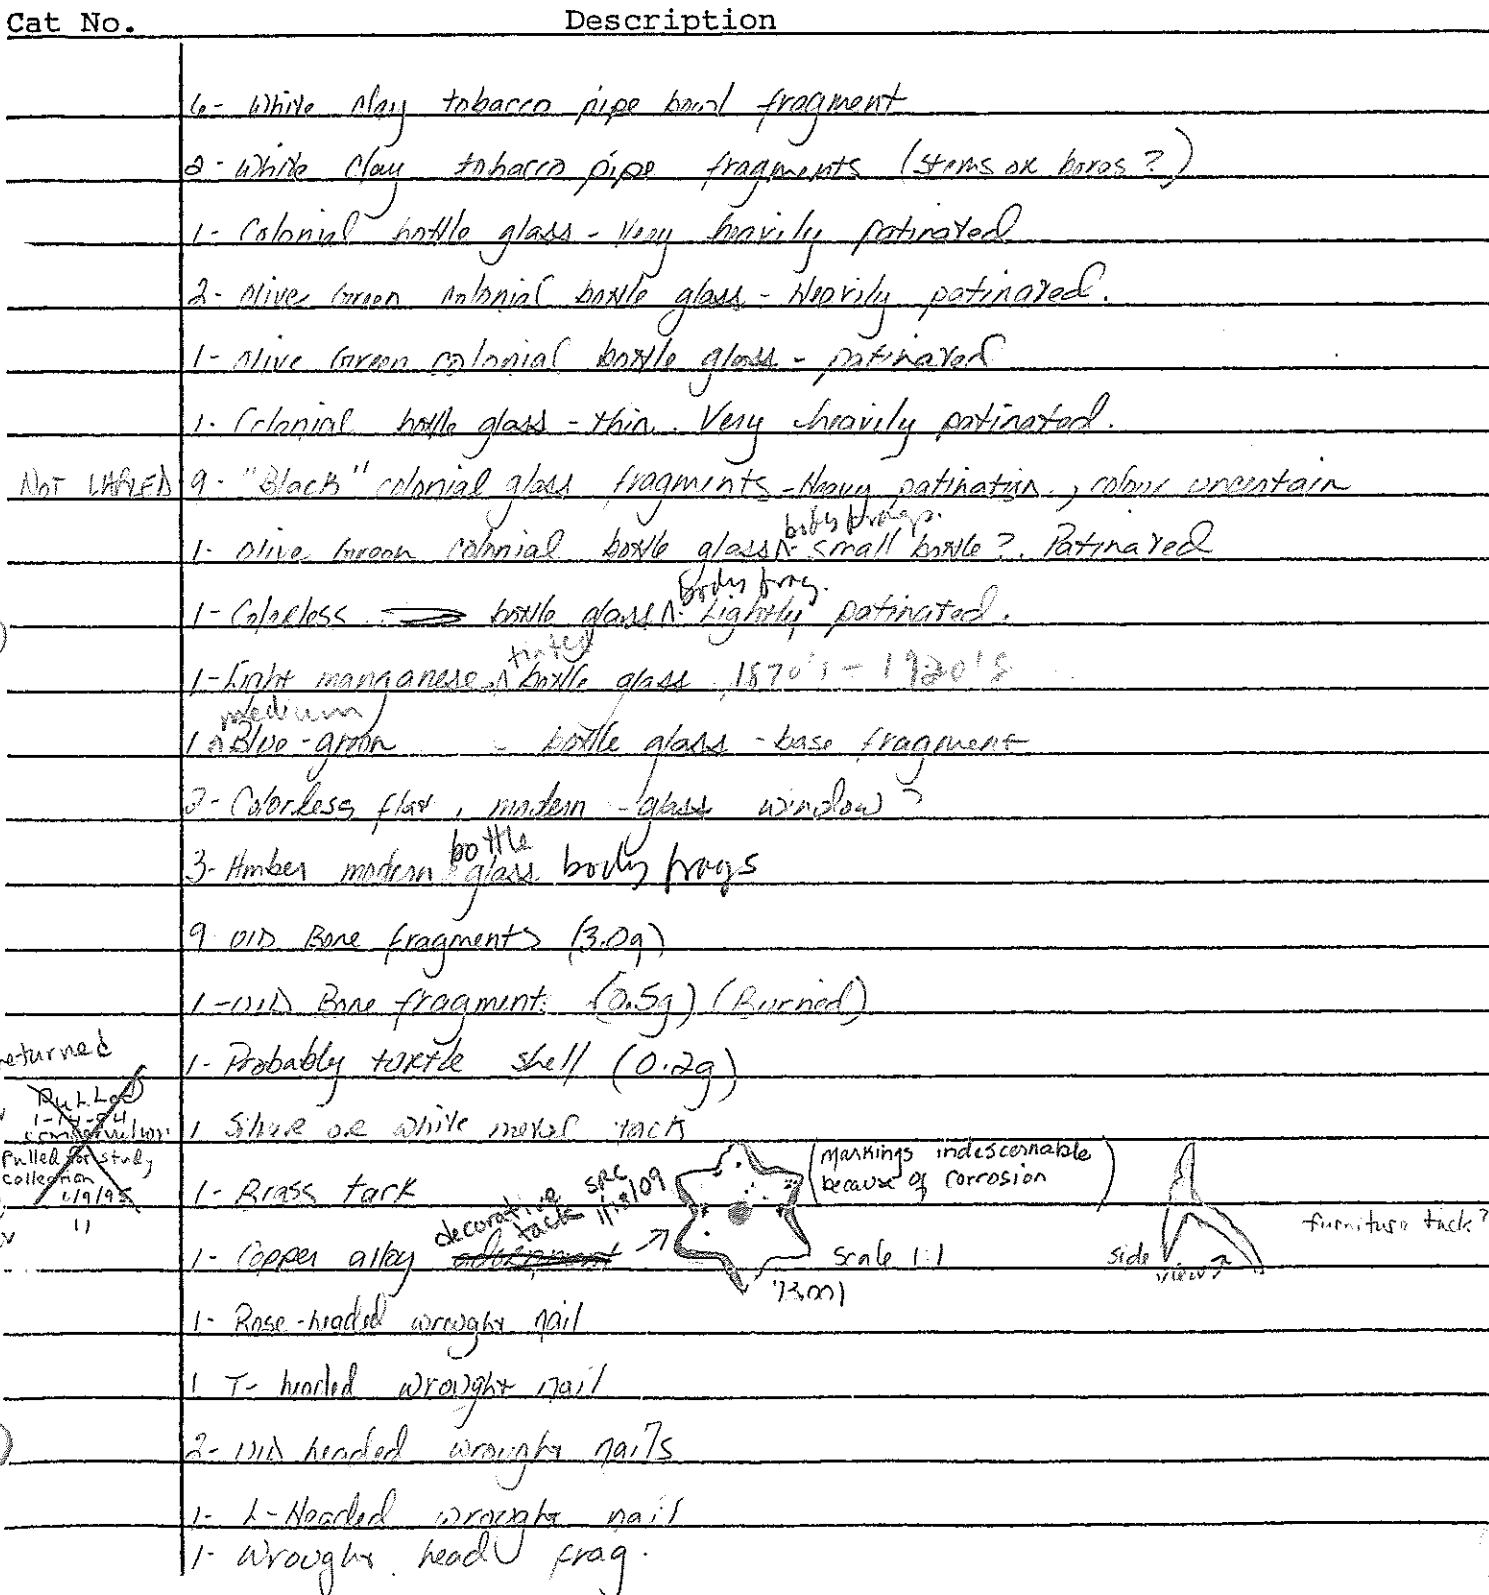 Cat No. Description
6- White Clay tobacco pipe bowl fragment
2- White Clay tobacco pipe fragments (stems or bores?)
1- Colonial bottle glass - Very heavily patinated
2- Olive Green colonial bottle glass - Heavily patinated.
1- Olive Green colonial bottle glass - patinated
1- Colonial bottle glass - thin. Very heavily patinated.
NOT LABLED 9- "Black" colonial glass fragments - Heavy patination, colour uncertain
body frags.
1- Olive Green Colonial bottle glass ^ - small bottle? Patinated
body frag.
1- Colorless bottle glass ^ - Lightly patinated.
tinted
1- Light manganese ^ bottle glass 1870's - 1920's
medium
1 ^ Blue-green bottle glass - base fragment
2- Colorless flat, modern - glass window?
bottle
3- Amber modern glass body frags
9 UID Bone fragments (3.0g)
1- UID Bone fragment (0.5g) (Burned)
returned
1- Probably turtle shell (0.2g)
Pulled
1-14-94
conservation
1 Silver or white metal tack
Pulled for study
collection
1/9/95
11
1- Brass tack
(Markings indescernable
because of corrosion)
decorative
tack SRC
1/13/09
1- Copper alloy adornment
Scale 1:1
73.001
side
view
furniture tack?
1- Rose-headed wrought nail
1 T- headed wrought nail
2- UID headed wrought nails
1- L-Headed wrought nail
1- Wrought head frag.